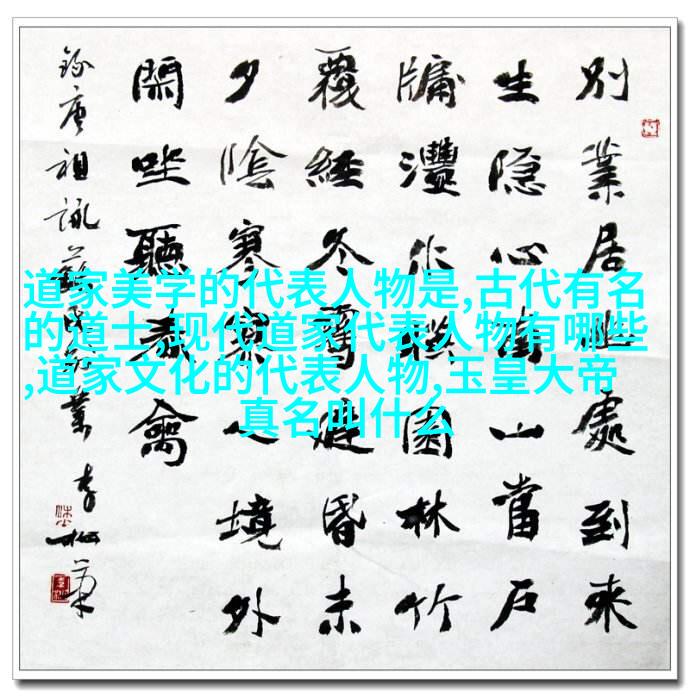 別業居幽處到来
生隐心南山當戶
牖灃水映園林竹
覆經冬雪庭昏未
夕陰寥寥人境外
閒坐聽春禽
錄唐祖詠蘇氏別業
道家美学的代表人物是,古代有名
的道士,现代道家代表人物有哪些
,道家文化的代表人物,玉皇大帝
真名叫什么